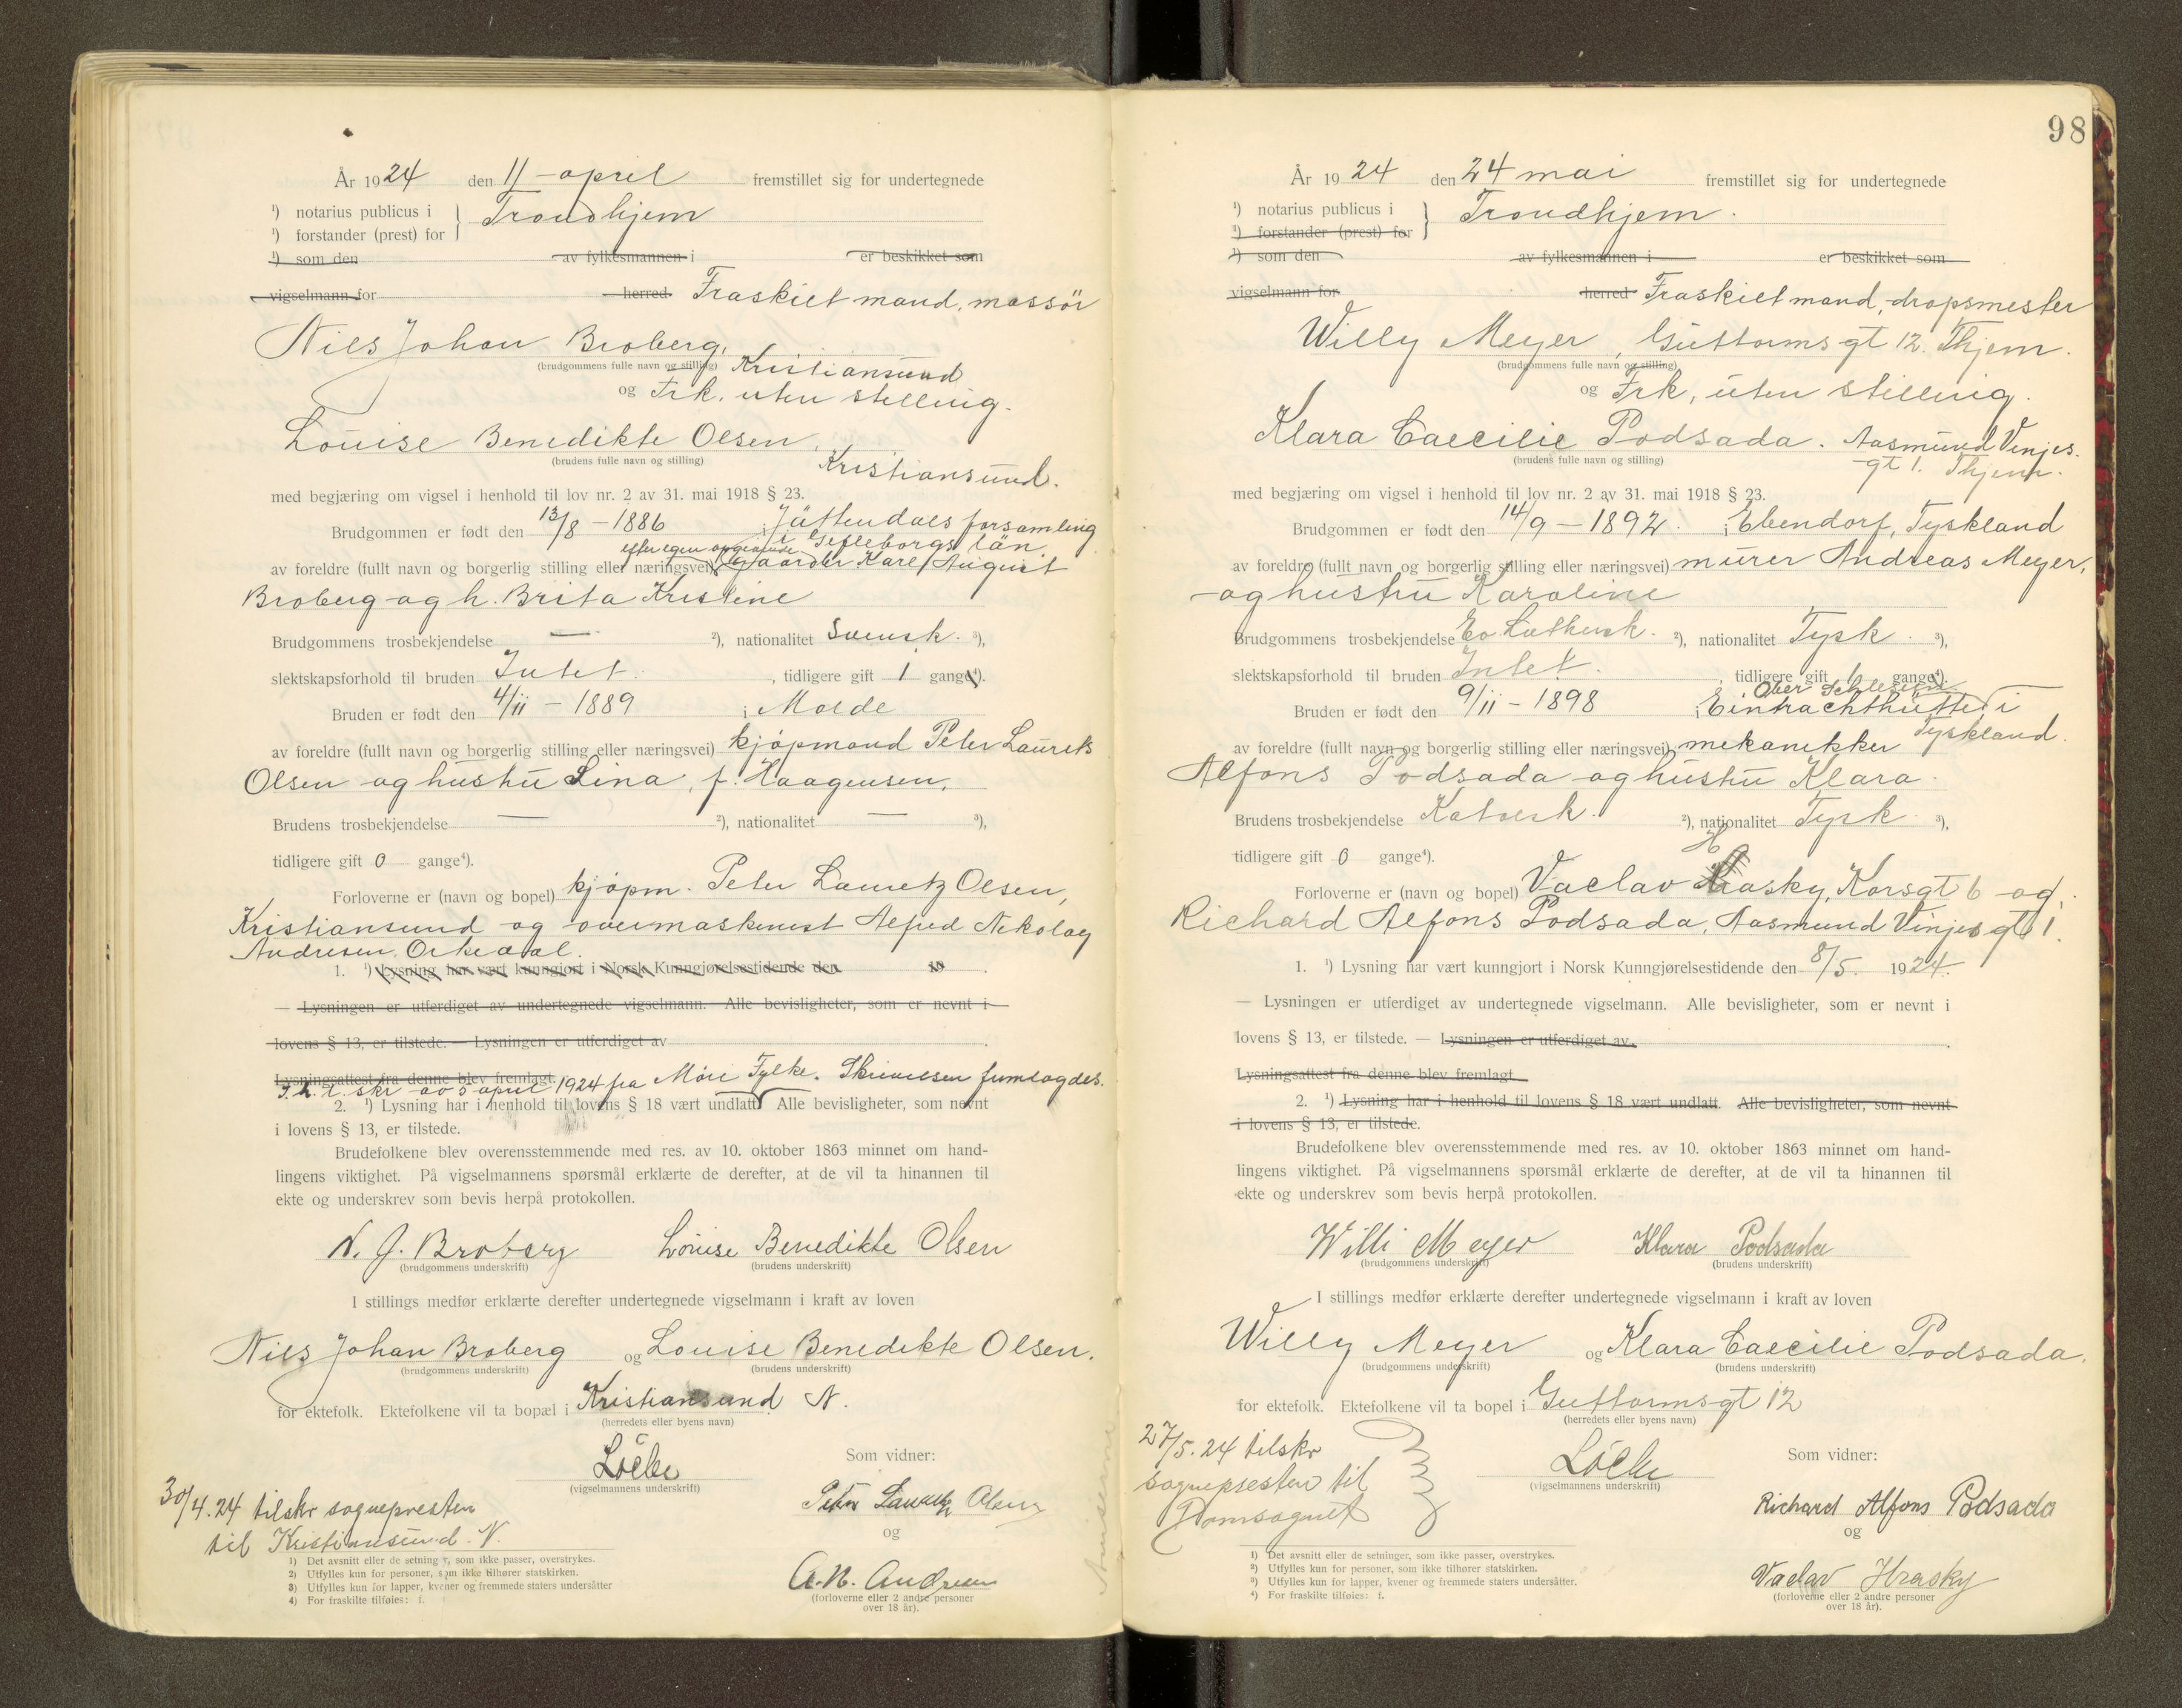 År 1924 den 11 april fremstillet sig for undertegnede
¹) notarius publicus i } Trondhjem
¹) forstander (prest) for
¹) som den av fylkesmannen i er beskikket som
vigselmann for herred Fraskilt mand, massör
Nils Johan Broberg,
(brudgommens fulle navn og stilling) Kristiansund
og Frk, uten stilling.
Louise Benedikte Olsen,
(brudens fulle navn og stilling) Kristiansund.
med begjæring om vigsel i henhold til lov nr. 2 av 31. mai 1918 § 23.
Brudgommen er født den 13/8 - 1886 i Jättendals forsamling
efter egen opgivende i Gefleborgs län.
av foreldre (fullt navn og borgerlig stilling eller næringsvei) Karl August
Broberg og h. Brita Kristine
Brudgommens trosbekjendelse — ²), nationalitet Svensk. ³),
slektskapsforhold til bruden Intet. , tidligere gift 1 gange⁴).
Bruden er født den 4/11 - 1889 i Molde
av foreldre (fullt navn og borgerlig stilling eller næringsvei) kjøpmand Peter Laurits
Olsen og hustru Lina, f. Haagensen,
Brudens trosbekjendelse — ²), nationalitet — ³),
tidligere gift 0 gange⁴).
Forloverne er (navn og bopel) kjøpm. Peter Lauretz Olsen,
Kristiansund og overmaskinist Alfred Nikolay
Andresen, Orkedal.
1. ¹) Lysning har vært kunngjort i Norsk Kunngjørelsestidende den 19 .
— Lysningen er utferdiget av undertegnede vigselmann. Alle bevisligheter, som er nevnt i
lovens § 13, er tilstede. — Lysningen er utferdiget av .
Lysningsattest fra denne blev fremlagt
skr av 5 april 1924 fra Møre Fylke. Skrivelsen fremlagdes.
2. ¹) Lysning har i henhold til lovens § 18 vært undlatt Alle bevisligheter, som nevnt
i lovens § 13, er tilstede.
Brudefolkene blev overensstemmende med res. av 10. oktober 1863 minnet om hand-
lingens viktighet. På vigselmannens spørsmål erklærte de derefter, at de vil ta hinannen til
ekte og underskrev som bevis herpå protokollen.
N. J. Broberg Louise Benedikte Olsen
(brudgommens underskrift) (brudens underskrift)
I stillings medfør erklærte derefter undertegnede vigselmann i kraft av loven
Nils Johan Broberg og Louise Benedikte Olsen.
(brudgommens underskrift) (brudens underskrift)
for ektefolk. Ektefolkene vil ta bopæl i Kristiansund N.
(herredets eller byens navn)
Som vidner:
(vigselmannens underskrift)
30/4.24 tilskr sognepresten
til Kristiansund N.
Peter Lauretz Olsen
og
A. N. Andresen
(forloverne eller 2 andre personer
over 18 år).
1) Det avsnitt eller de setninger, som ikke passer, overstrykes.
2) Utfylles kun for personer, som ikke tilhører statskirken.
3) Utfylles kun for lapper, kvener og fremmede staters undersåtter
4) For fraskilte tilføies: f.
98
År 1924 den 24 mai fremstillet sig for undertegnede
¹) notarius publicus i } Trondhjem.
¹) forstander (prest) for
¹) som den av fylkesmannen i er beskikket som
vigselmann for herred Fraskilt mand, dropsmester
Willy Meyer, Guttormsgt 12. Thjem.
(brudgommens fulle navn og stilling)
og Frk, uten stilling.
Klara Caecilie Podsada. Aasmund Vinjes-
(brudens fulle navn og stilling) gt 1. Thjem.
med begjæring om vigsel i henhold til lov nr. 2 av 31. mai 1918 § 23.
Brudgommen er født den 14/9 - 1892. i Ebendorf, Tyskland
av foreldre (fullt navn og borgerlig stilling eller næringsvei) murer Andreas Meyer,
og hustru Karoline
Brudgommens trosbekjendelse Ev. Luthersk. ²), nationalitet Tysk. ³),
slektskapsforhold til bruden Intet. , tidligere gift 1 gange⁴).
Ober Schlesien
Bruden er født den 9/11 - 1898 i Eintrachthütte, i
Tyskland.
av foreldre (fullt navn og borgerlig stilling eller næringsvei) mekanikker
Alfons Podsada og hustru Klara.
Brudens trosbekjendelse Katolsk. ²), nationalitet Tysk. ³),
tidligere gift 0 gange⁴).
Forloverne er (navn og bopel) Vaclav Hrasky, Korsgt 6 og
Richard Alfons Podsada, Aasmund Vinjes gt 1.
1. ¹) Lysning har vært kunngjort i Norsk Kunngjørelsestidende den 8/5. 1924.
— Lysningen er utferdiget av undertegnede vigselmann. Alle bevisligheter, som er nevnt i
lovens § 13, er tilstede. — Lysningen er utferdiget av .
Lysningsattest fra denne blev fremlagt
2. ¹) Lysning har i henhold til lovens § 18 vært undlatt. Alle bevisligheter, som nevnt
i lovens § 13, er tilstede.
Brudefolkene blev overensstemmende med res. av 10. oktober 1863 minnet om hand-
lingens viktighet. På vigselmannens spørsmål erklærte de derefter, at de vil ta hinannen til
ekte og underskrev som bevis herpå protokollen.
Willi Meyer Klara Podsada
(brudgommens underskrift) (brudens underskrift)
I stillings medfør erklærte derefter undertegnede vigselmann i kraft av loven
Willy Meyer og Klara Caecilie Podsada.
(brudgommens underskrift) (brudens underskrift)
for ektefolk. Ektefolkene vil ta bopel i Guttormsgt 12
(herredets eller byens navn)
27/5.24 tilskr
sognepresten til
Domsognet
Som vidner:
(vigselmannens underskrift)
Richard Alfons Podsada
og
Vaclav Hrasky
(forloverne eller 2 andre personer
over 18 år).
¹) Det avsnitt eller de setninger, som ikke passer, overstrykes.
²) Utfylles kun for personer, som ikke tilhører statskirken.
³) Utfylles kun for lapper, kvener og fremmede staters undersåtter.
⁴) For fraskilte tilføies: f.